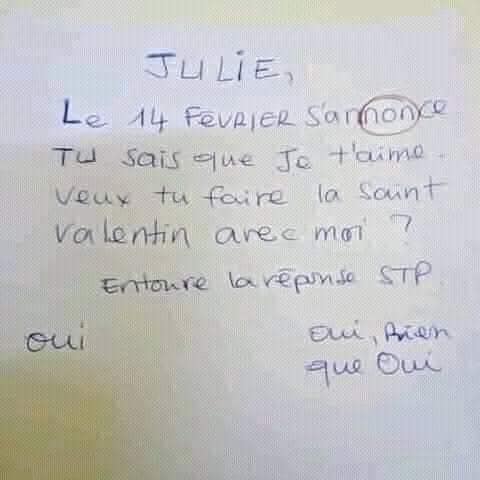 JULIE,
Le 14 FÉVRIER s'annonce
Tu sais que Je t'aime.
Veux tu faire la saint
valentin avec moi ?
Entoure la réponse STP.
oui
oui, Rien
que Oui